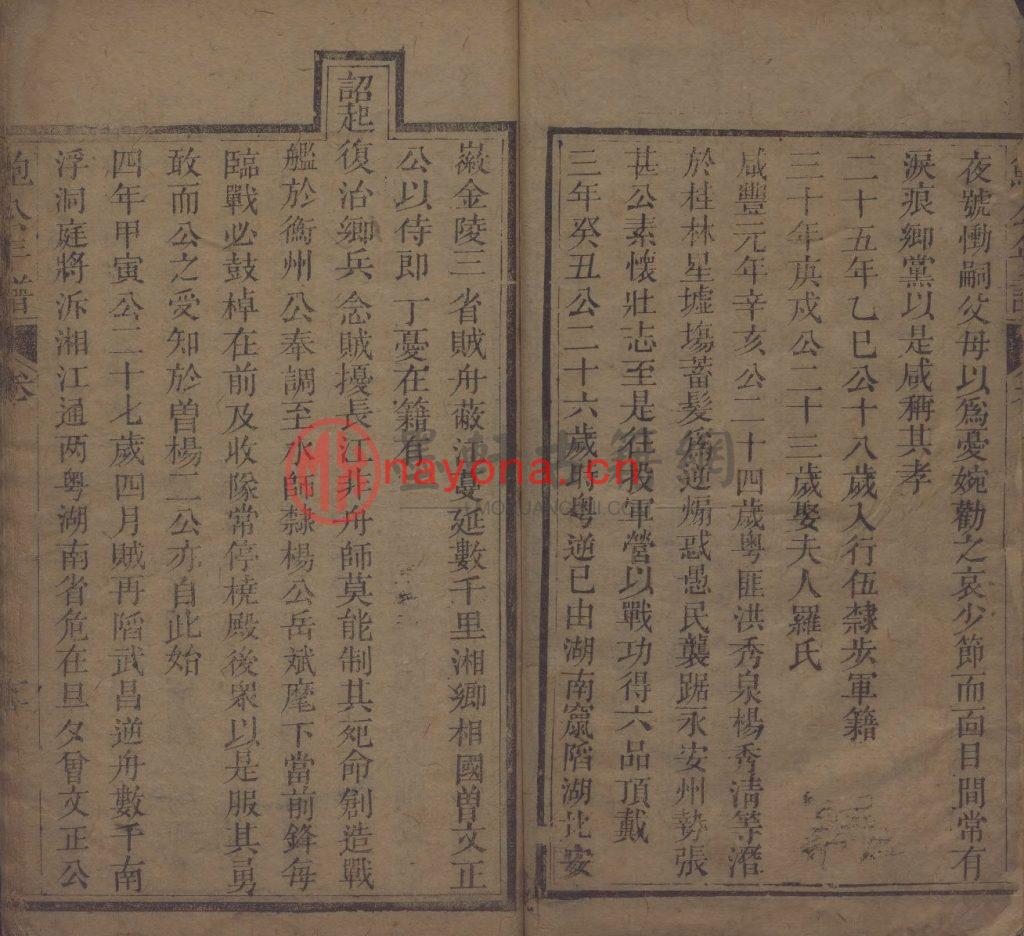 夜號慟嗣父母以爲憂婉勸之哀少節而面目間常有
淚痕鄉黨以是咸稱其孝
二十五年乙巳公十八歲入行伍隸步軍籍
三十年庚戌公二十三歲娶夫人羅氏
咸豐元年辛亥公二十四歲粵匪洪秀泉楊秀清等潛
於桂林星墟塲蓄髮爲逆煽惑愚民襲踞永安州勢張
甚公素懷壯志至是往投軍營以戰功得六品頂戴
三年癸丑公二十六歲時粵逆已由湖南竄陷湖北安
徽金陵三省賊舟蔽江蔓延數千里湘鄉相國曾文正
公以侍郎丁憂在籍有
詔起復治鄉兵念賊擾長江非舟師莫能制其死命創造戰
艦於衡州公奉調至水師隸楊公岳斌麾下當前鋒每
臨戰必鼓棹在前及收隊常停橈殿後眾以是服其勇
敢而公之受知於曾楊二公亦自此始
四年甲寅公二十七歲四月賊再陷武昌逆舟數千南
浮洞庭將泝湘江通两粵湖南省危在旦夕曾文正公
鮑公年譜 卷
nayona.cn